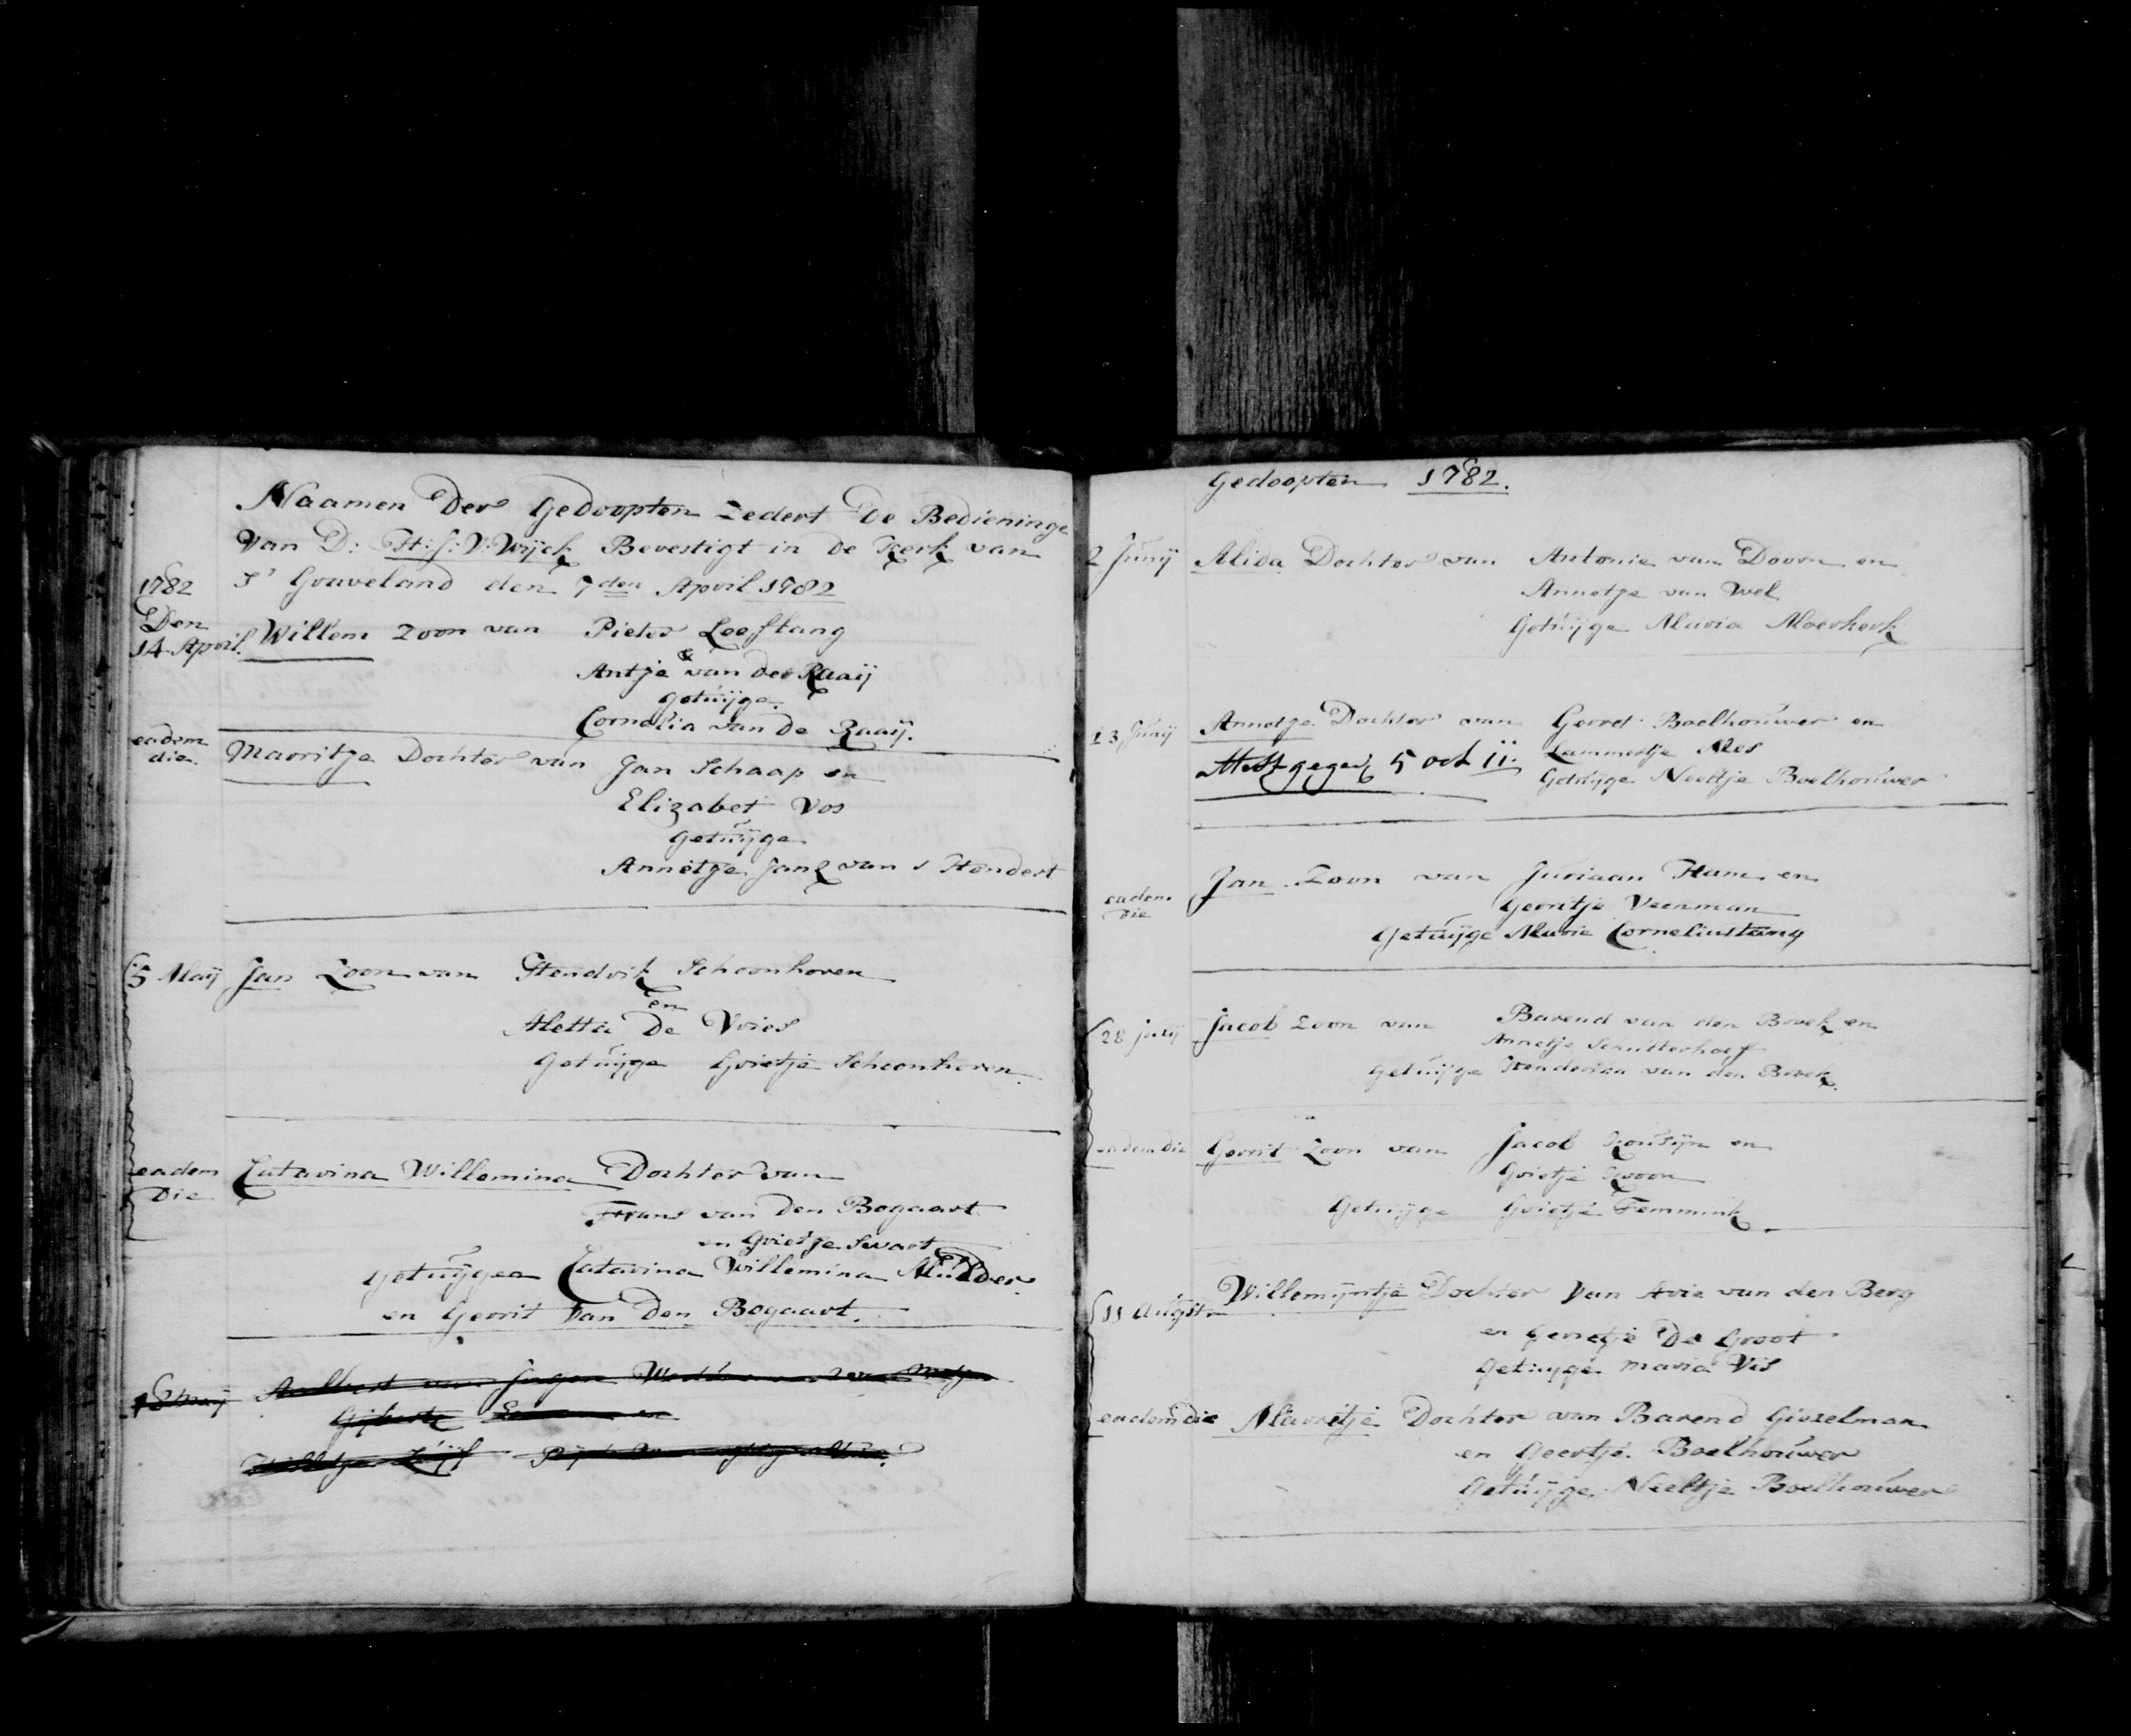 Naamen Der Gedoopten Zedert De Bedieninge
Van D: H: J: V: Wijck Bevestigt in de Kerk van
1782 S' Graveland den 7den April 1782
Den
14 April Willem Zoon van Pieter Leeflang
&
Antje van der Raaij
getuijge
Cornelia van de Raaij.
eadem
die. Marritje Dochter van Jan Schaap en
Elizabet Vos
getuijge
Annetge Janz van s Hondert
5 Maij Jan Zoon van Hendrik Schoonhoven
en
Aletta De Vries
Getuijge Grietje Schoonhoven
eadem
Die Catarina Willemina Dochter van
Frans van den Bogaart
en Grietje Swart
getuijgen Catarina Willemina Mulder
en Gerrit Van Den Bogaart.
Gedoopten 1782.
2 Junij Alida Dochter van Antonie van Doorn en
Annetje van Wel
Getuijge Maria Moerkerk
23 Junij Annetge Dochter van Gerret Boelhouwer en
Lammertje Mes
Attest gegev 5 oct 11. Getuijge Neeltje Boelhouwer
eadem
Die Jan Zoon van Juriaan Ham en
Gerritje Veenman
Getuijge Marie
28 Julij Jacob Zoon van Barend van den Broek en
Annetje
Getuijge Henderica van den Broek.
eadem die Gerrit Zoon van Jacob en
Grietje Kroon
Getuijge Grietje Temmink
11 Augst Willemijntje Dochter Van Arie van den Berg
en Gerretje De Groot
Getuyge Maria Vis
eadem die Marritje Dochter van Barend Gijzelman
en Geertje Boelhouwer
Getuijge Neeltje Boelhouwer